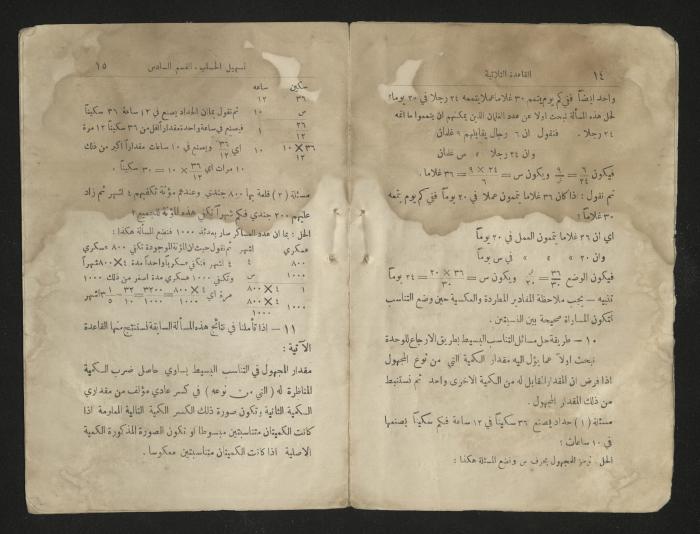 ١٤ القاعدة الثلاثية
واحد ايضاً ففي كم يوم يتمم ٣٠ غلاماً عملاً يتممه ٢٤ رجلا في ٢٠ يوما؟
لحل هذه المسألة نبحث اولا عن عدد الغلمان الذين يمكنهم ان يتمموا ما اتمه
٢٤ رجلا . فنقول ان ٦ رجال يقابلهم ٩ غلمان
وان ٢٤ رجلا » س غلمان
فيكون ٦/٢٤ = ٩/س ويكون س = ٢٤ × ٩/٦ = ٣٦ غلاما .
ثم نقول : اذا كان ٣٦ غلاما يتممون عملا في ٢٠ يوماً ففي كم يوم يتمه
٣٠ غلاماً ؟
اي ان ٣٦ غلاما يتممون العمل في ٢٠ يوماً
وان ٣٠ » » » في س يوماً
فيكون الوضع ٣٦/٣٠ = س/٢٠ ويكون س = ٣٦ × ٢٠/٣٠ = ٢٤ يوماً
تنبيه – يجب ملاحظة المقادير المطردة والعكسية حين وضع التناسب
لتكون المساواة صحيحة بين النسبتين .
١٠ – طريقة حل مسائل التناسب البسيط بطريق الارجاع للوحدة
نبحث اولاً عما يؤل اليه مقدار الكمية التي من نوع المجهول
اذا فرض ان المقدار المقابل له من الكمية الاخرى واحد ثم نستنبط
من ذلك المقدار المجهول .
مسئلة (١) حداد يصنع ٣٦ سكيناً في ١٢ ساعة فكم سكيناً يصنعها
في ١٠ ساعات ؛
الحل : نرمز للمجهول بحرف س ونضع المسئلة هكذا :
تسهيل الحساب ، القسم السادس ١٥
سكين ساعه
٣٦ ١٢
س ١٠
٣٦/١٢ ١
٣٦ × ١٠/١٢ ١٠
ثم نقول بما ان الحداد يصنع في ١٢ ساعة ٣٦ سكيناً
فيصنع في ساعة واحدة مقدار اقل من ٣٦ سكيناً ١٢ مرة
اي ٣٦/١٢ ويصنع في ١٠ ساعات مقداراً اكبر من ذلك
١٠ مرات اي ٣٦/١٢ × ١٠ = ٣٠ سكيناً .
مسئلة (٢) قلعة بها ٨٠٠ جندي وعندهم مؤنة تكفيهم ٤ اشهر ثم زاد
عليهم ٢٠٠ جندي فكم شهراً تكفي هذه المؤنة للجميع ؟
الحل : بما ان عدد العساكر صار بعدئذ ١٠٠٠ فنضع المسألة هكذا :
عسكري اشهر
٨٠٠ ٤
١٠٠٠ س
١ ٤ × ٨٠٠
١٠٠٠ ٤ × ٨٠٠/١٠٠٠
ثم نقول حيث ان المؤنة الموجودة تكفي ٨٠٠ عسكري
٤ اشهر فتكفي عسكرياً واحداً مدة ٤ × ٨٠٠ شهراً
وتكفي ١٠٠٠ عسكري مدة اصغر من ذلك ١٠٠٠
مرة اي ٤ × ٨٠٠/١٠٠٠ = ٣٢٠٠/١٠٠٠ = ٣٢/١٠ = ٣ ١/٥ اشهر
١١ – اذا تأملنا في نتائج هذه المسألة السابقة نستنتج منها القاعدة
الآتية :
مقدار المجهول في التناسب البسيط يساوي حاصل ضرب الكمية
المناظرة له ( التي من نوعه ) في كسر عادي مؤلف من مقداري
الكمية الثانية وتكون صورة ذلك الكسر الكمية التالية المعلومة اذا
كانت الكميتان متناسبتين مبسوطا او تكون الصورة المذكورة الكمية
الاصلية اذا كانت الكميتان متناسبتين معكوسا .